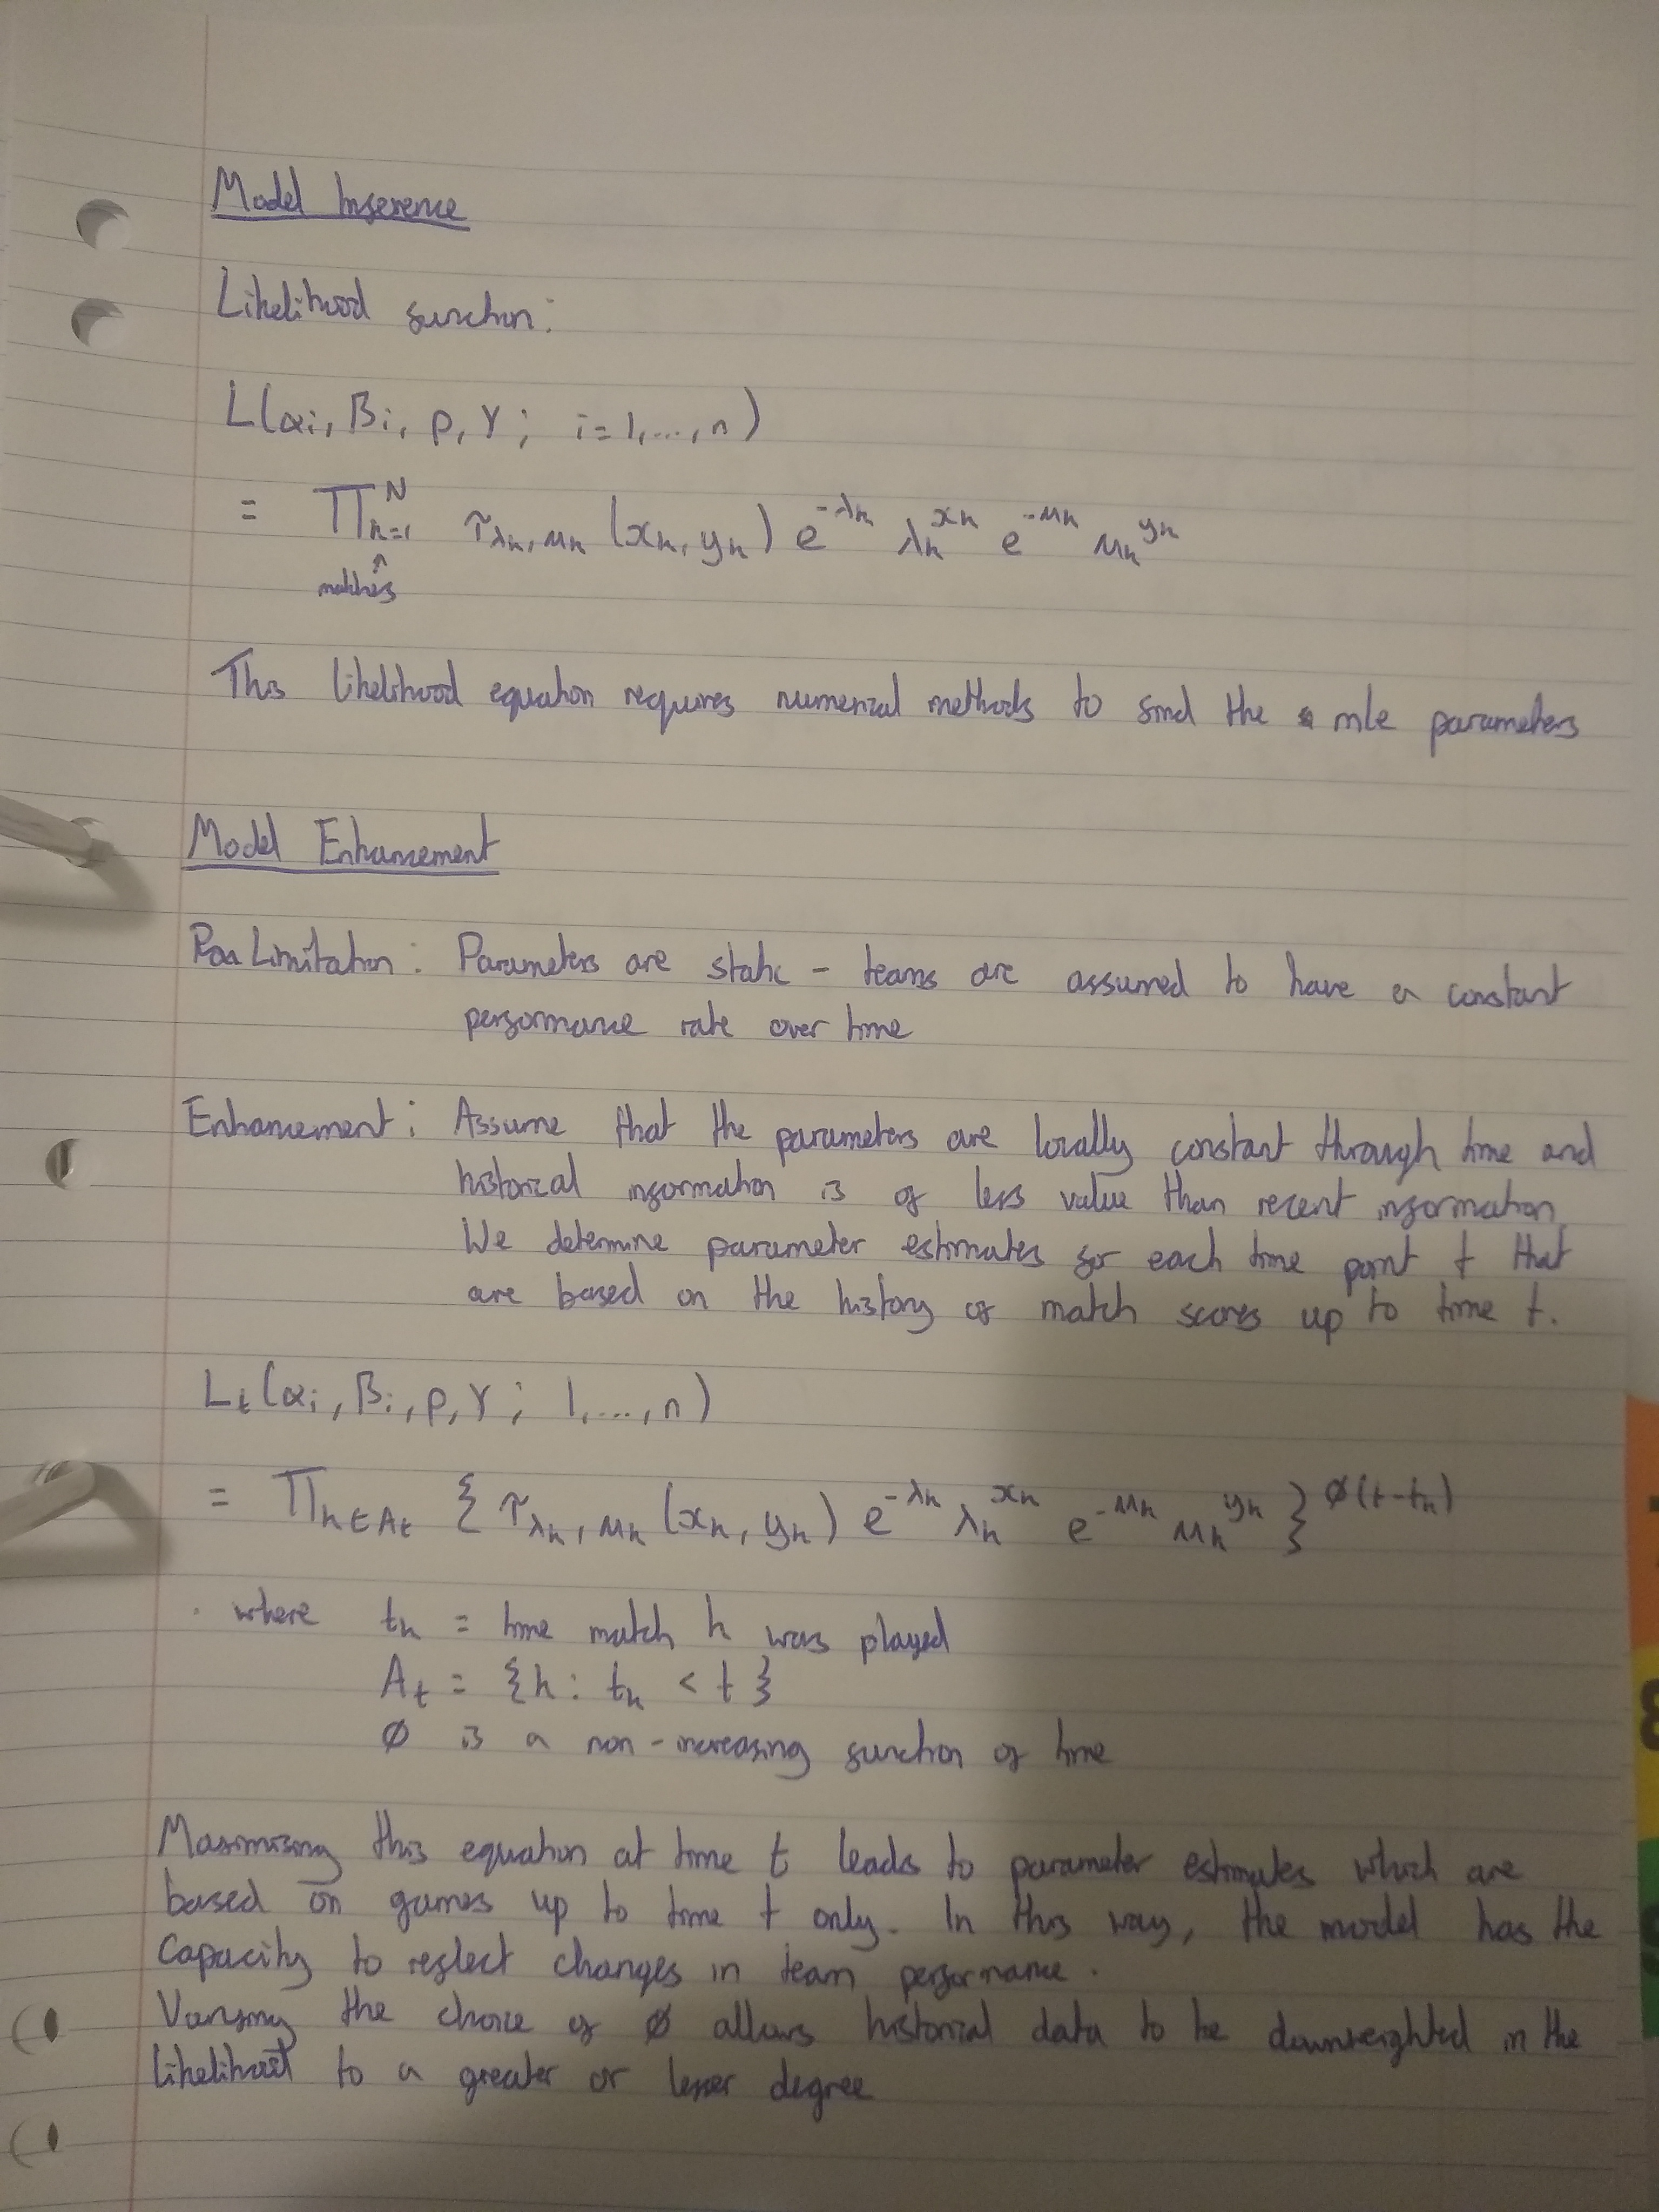 Model Inference
Likelihood function:
L(αi, βi, ρ, γ; i=1,...,n)
= ∏_{k=1}^{N} τ_{λk, μk} (xk, yk) e^{-λk} λk^{xk} e^{-μk} μk^{yk}
↑
matches
This likelihood equation requires numerical methods to find the mle parameters
Model Enhancement
Limitation: Parameters are static - teams are assumed to have a constant
performance rate over time
Enhancement: Assume that the parameters are locally constant through time and
historical information is of less value than recent information.
We determine parameter estimates for each time point t that
are based on the history of match scores up to time t.
L_t(αi, βi, ρ, γ; 1,...,n)
= ∏_{k∈At} { τ_{λk, μk} (xk, yk) e^{-λk} λk^{xk} e^{-μk} μk^{yk} }^{φ(t-tk)}
where tk = time match k was played
At = {k: tk < t}
φ is a non-increasing function of time
Maximising this equation at time t leads to parameter estimates which are
based on games up to time t only. In this way, the model has the
capacity to reflect changes in team performance.
Varying the choice of φ allows historical data to be downweighted in the
likelihood to a greater or lesser degree
8